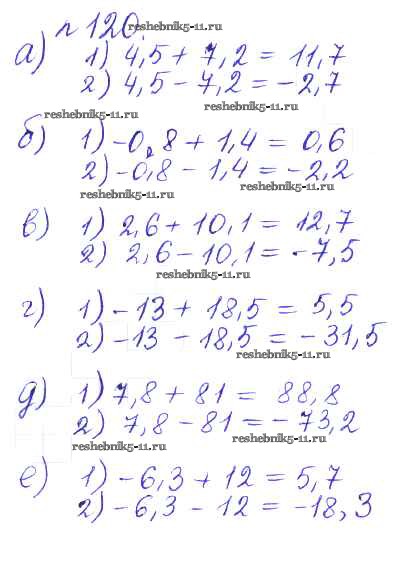 № 120.
reshebnik5-11.ru
а) 1) 4,5 + 7,2 = 11,7
2) 4,5 - 7,2 = -2,7
reshebnik5-11.ru
reshebnik5-11.ru
б) 1) -0,8 + 1,4 = 0,6
2) -0,8 - 1,4 = -2,2
reshebnik5-11.ru
reshebnik5-11.ru
в) 1) 2,6 + 10,1 = 12,7
2) 2,6 - 10,1 = -7,5
reshebnik5-11.ru
г) 1) -13 + 18,5 = 5,5
2) -13 - 18,5 = -31,5
reshebnik5-11.ru
д) 1) 7,8 + 81 = 88,8
2) 7,8 - 81 = -73,2
reshebnik5-11.ru
reshebnik5-11.ru
е) 1) -6,3 + 12 = 5,7
2) -6,3 - 12 = -18,3